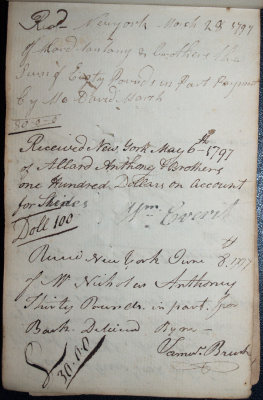 Recd Newyork March 28 1797
of Allard Anthony & Brothers the
Sum of Eighty Pounds in Part Payment
by Me David Marsh
80-0-0
Received New York May 6th 1797
of Allard Anthony & Brothers
one Hundred Dollars on account
for Skydes
Doll 100
Wm Everit
New York June 8th 1797
of Mr Nicholas Anthony
Thirty Pounds in part for
Bark
Saml. Brush
30.0.0